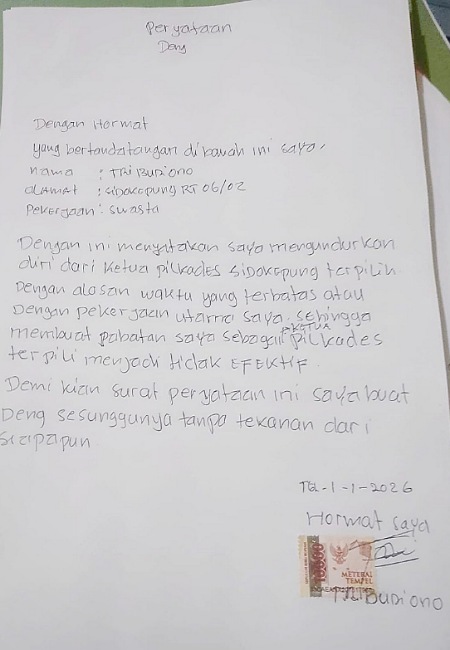 Peryataan
Deny
Dengan Hormat
yang bertandatangan dibawah ini saya,
nama : TRI BUDIONO
alamat : SIDOKEPUNG RT 06/02
Pekerjaan : Swasta
Dengan ini menyatakan saya mengundurkan
diri dari Ketua pilkades SIDOKEPUNG terpilih
Dengan alasan waktu yang terbatas atau
Dengan pekerjaan utama saya. sehingga
membuat pabatan saya sebagai KETUA pilkades
terpili menjadi tidak EFEKTIF.
Demi kian surat peryataan ini saya buat
Deng sesunggunya tanpa tekanan dari
siapapun
TGL-1-1-2026
Hormat saya
10000
METERAI
TEMPEL
TRI BUDIONO